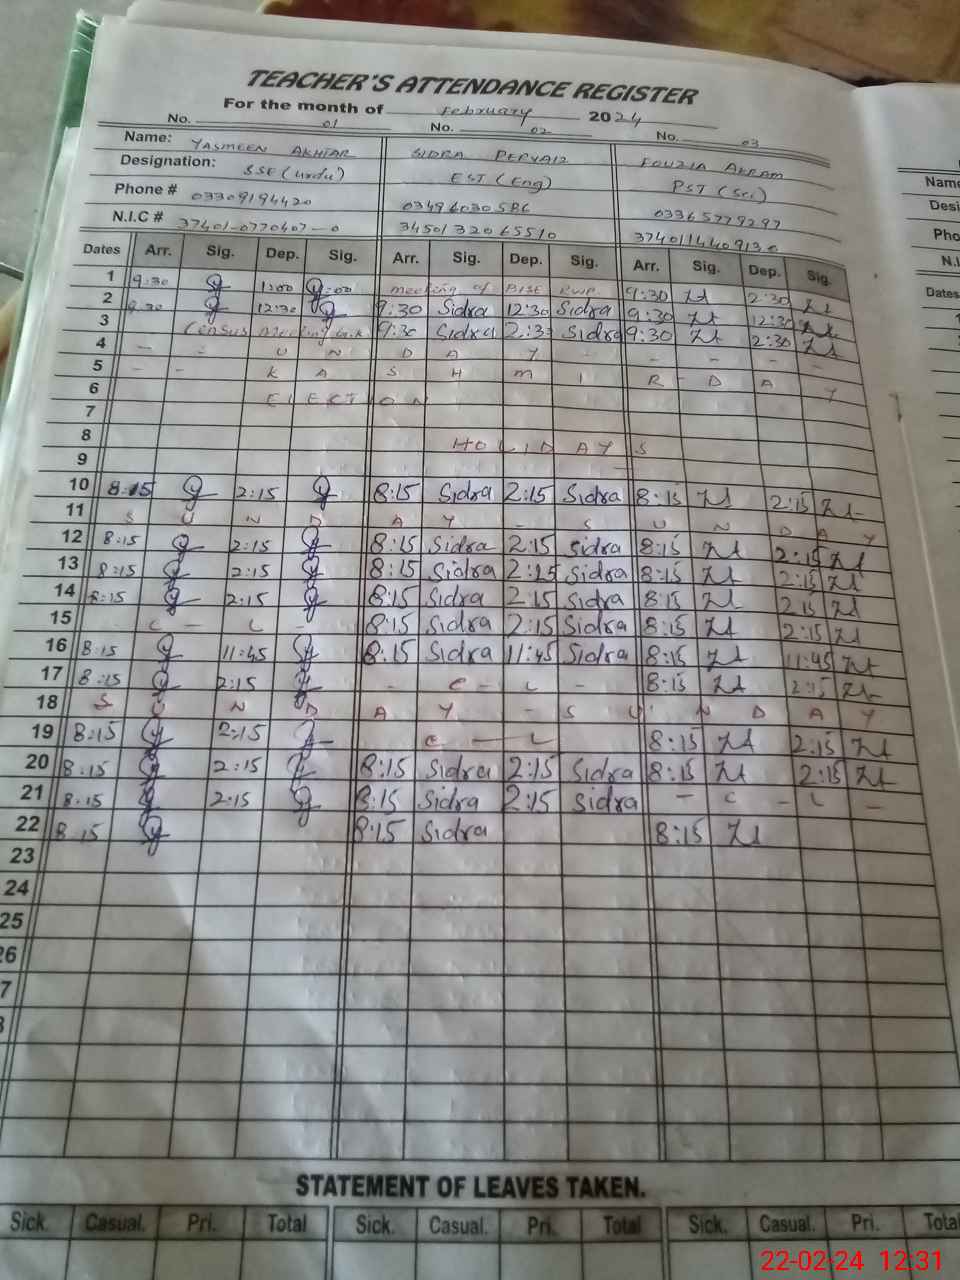 TEACHER'S ATTENDANCE REGISTER
For the month of February 2024
No. 01 No. 02 No. 03
Name: YASMEEN AKHTAR SIDRA PERVAIZ FOUZIA AKRAM
Designation: SSE (urdu) EST (Eng) PST (Sci)
Phone # 03309194420 03365779297
N.I.C # 37401-0770407-0 3450132065510
Dates Arr. Sig. Dep. Sig. Arr. Sig. Dep. Sig. Arr. Sig. Dep. Sig.
1 9:30 1:00 meeting of BISE RWP. 9:30 2:30
2 9:30 12:30 9:30 Sidra 12:30 Sidra 9:30 12:30
3 Census meeting 9:30 Sidra 2:30 Sidra 9:30 2:30
4 - - U N D A Y - - - -
5 - - K A S H M I R - D A Y
6 E L E C T I O N
7
8 H O L I D A Y S
9
10 8:15 2:15 8:15 Sidra 2:15 Sidra 8:15 2:15
11 S U N D A Y - S U N D A Y
12 8:15 2:15 8:15 Sidra 2:15 Sidra 8:15 2:15
13 8:15 2:15 8:15 Sidra 2:15 Sidra 8:15 2:15
14 8:15 2:15 8:15 Sidra 2:15 Sidra 8:15 2:15
15 C - L - 8:15 Sidra 2:15 Sidra 8:15 2:15
16 8:15 11:45 8:15 Sidra 11:45 Sidra 8:15 11:45
17 8:15 2:15 - C - L - 8:15 2:15
18 S U N D A Y - S U N D A Y
19 8:15 2:15 C - L 8:15 2:15
20 8:15 2:15 8:15 Sidra 2:15 Sidra 8:15 2:15
21 8:15 2:15 8:15 Sidra 2:15 Sidra - C - L -
22 8:15 8:15 Sidra 8:15
23
24
25
26
7
8
STATEMENT OF LEAVES TAKEN.
Sick. Casual. Pri. Total Sick. Casual. Pri. Total Sick. Casual. Pri. Total
Name
Desi
Pho
N.I
Dates
22-02-24 12:31